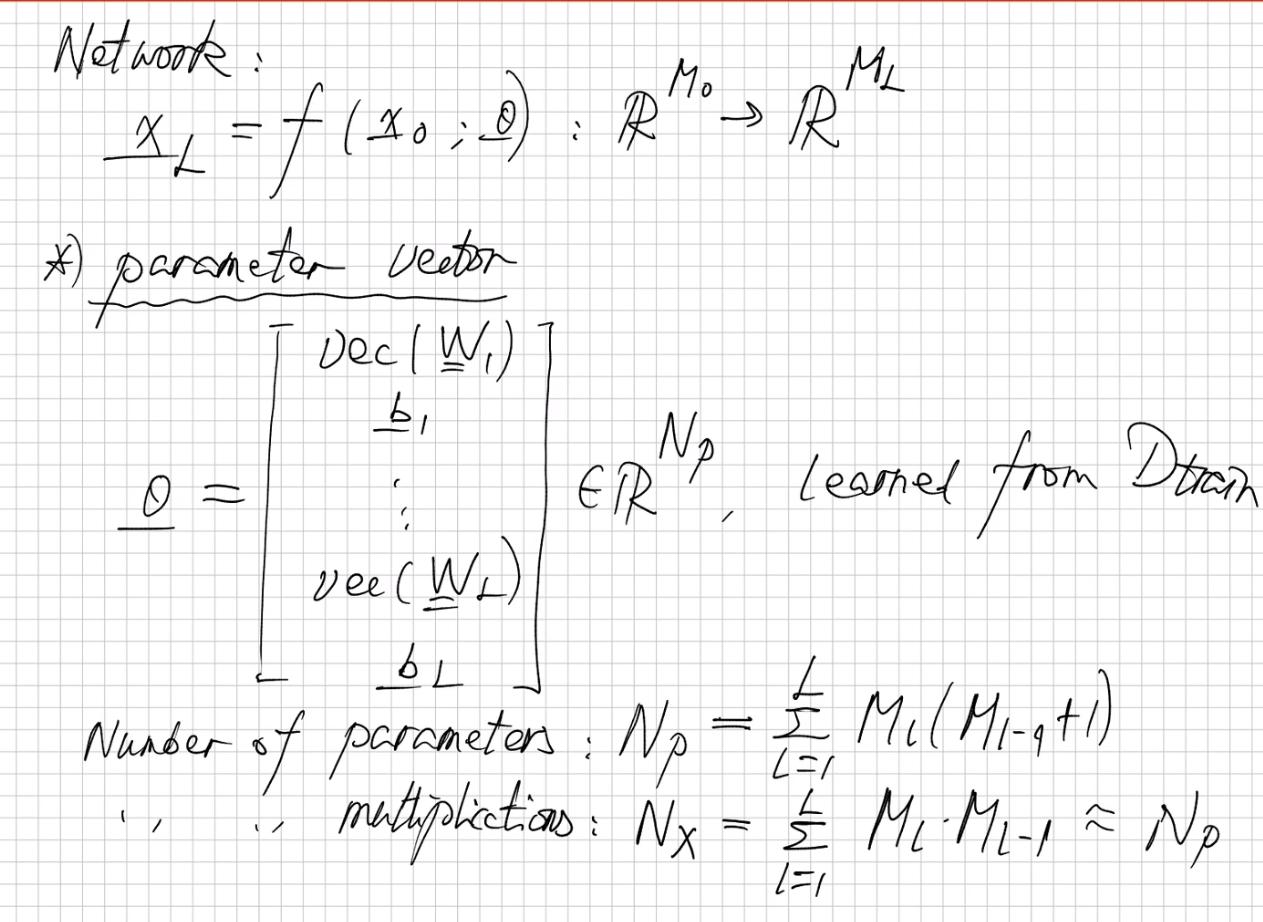 Network :
x_L = f ( x_0 ; θ ) : ℝ^{M_0} → ℝ^{M_L}
*) parameter vector
θ = [ vec( W_1 ) b_1 ⋮ vec( W_L ) b_L ] ∈ ℝ^{N_p} , learned from Dtrain
Number of parameters : N_p = Σ_{l=1}^{L} M_l ( M_{l-1} + 1 )
" " multiplications : N_× = Σ_{l=1}^{L} M_l · M_{l-1} ≈ N_p